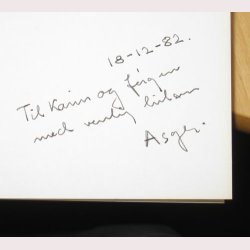 18-12-82.
Til Karin og Jørgen
med venlig hilsen
Asger.